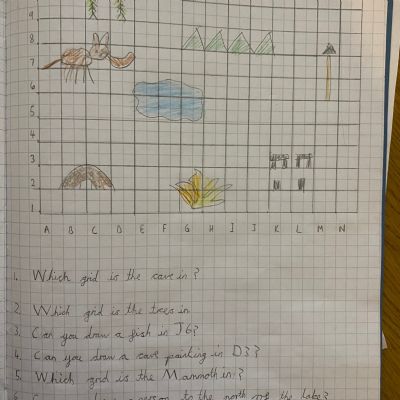 9
8
7
6
5
4
3
2
1
A B C D E F G H I J K L M N
1. Which grid is the cave in?
2. Which grid is the trees in
3. Can you draw a fish in J6?
4. Can you draw a cave painting in D3?
5. Which grid is the Mammoth in?
6. person to the north of the lake?